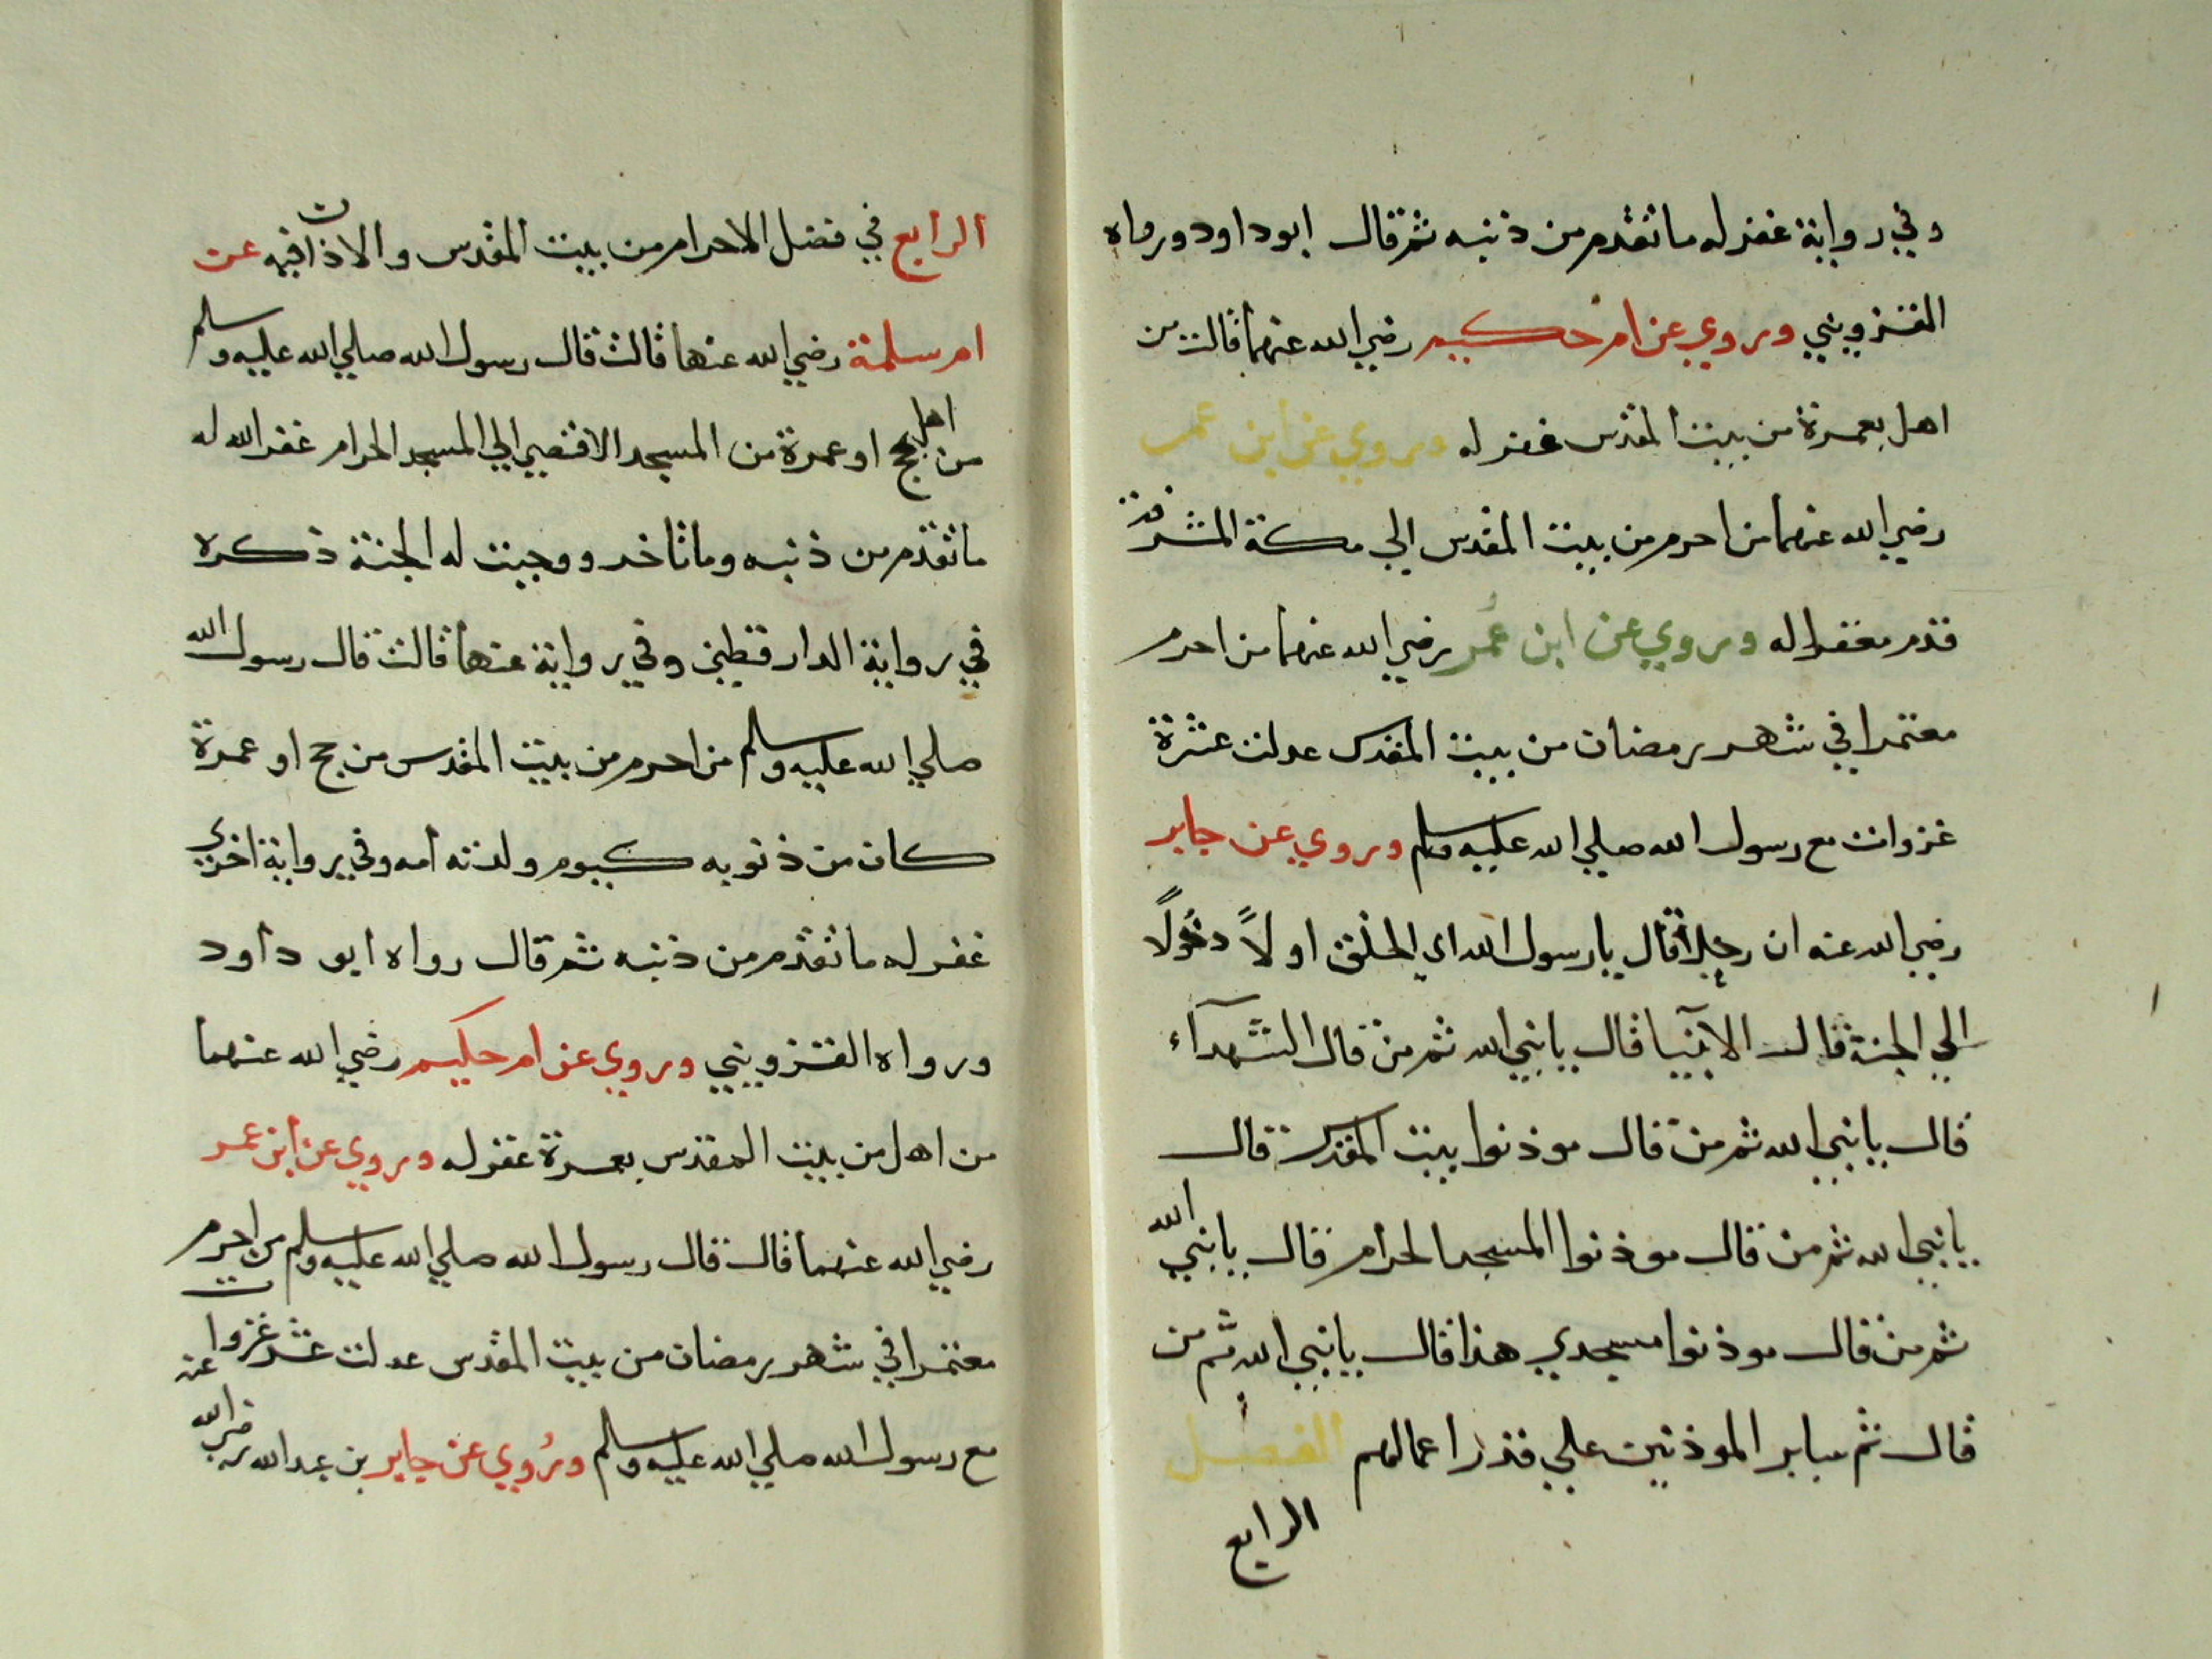 وفي رواية غفر له ما تقدم من ذنبه ثم قال ابو داود ورواه
القزويني وروي عن ام حكيم رضي الله عنهما قالت من
اهل بعمرة من بيت المقدس غفر له وروي عن ابن عمر
رضي الله عنهما من احرم من بيت المقدس الي مكة المشرفة
قدم مغفرا له وروي عن ابن عُمر رضي الله عنهما من احرم
معتمرا في شهر رمضان من بيت المقدس عدلت عشرة
غزوات مع رسول الله صلي الله عليه وسلم وروي عن جابر
رضي الله عنه ان رجلاً قال يا رسول الله اي الخلق اولاً دخُولاً
الي الجنة قال الانبيا قال يا نبي الله ثم من قال الشهدآء
قال يا نبي الله ثم من قال موذنوا بيت المقدس قال
يا نبي الله ثم من قال موذنوا المسجد الحرام قال يا نبي الله
ثم من قال موذنوا مسجدي هذا قال يا نبي الله ثم من
قال ثم ساير الموذنين علي قدر اعمالهم الفصل
الرابع
الرابع في فضل الاحرام من بيت المقدس والاذان فيه عن
ام سلمة رضي الله عنها قالت قال رسول الله صلي الله عليه وسلم
من اهل بحج او عمرة من المسجد الاقصي الي المسجد الحرام غفر الله له
ما تقدم من ذنبه وما تاخر ووجبت له الجنة ذكره
في رواية الدارقطني وفي رواية عنها قالت قال رسول الله
صلي الله عليه وسلم من احرم من بيت المقدس من حج او عمرة
كان من ذنوبه كيوم ولدته امه وفي رواية اخري
غفر له ما تقدم من ذنبه ثم قال رواه ابو داود
ورواه القزويني وروي عن ام حكيم رضي الله عنهما
من اهل من بيت المقدس بعمرة غفر له وروي عن ابن عمر
رضي الله عنهما قال قال رسول الله صلي الله عليه وسلم من احرم
معتمرا في شهر رمضان من بيت المقدس عدلت عشر غزوات
مع رسول الله صلي الله عليه وسلم ورُوي عن جابر بن عبد الله رضي الله عنه